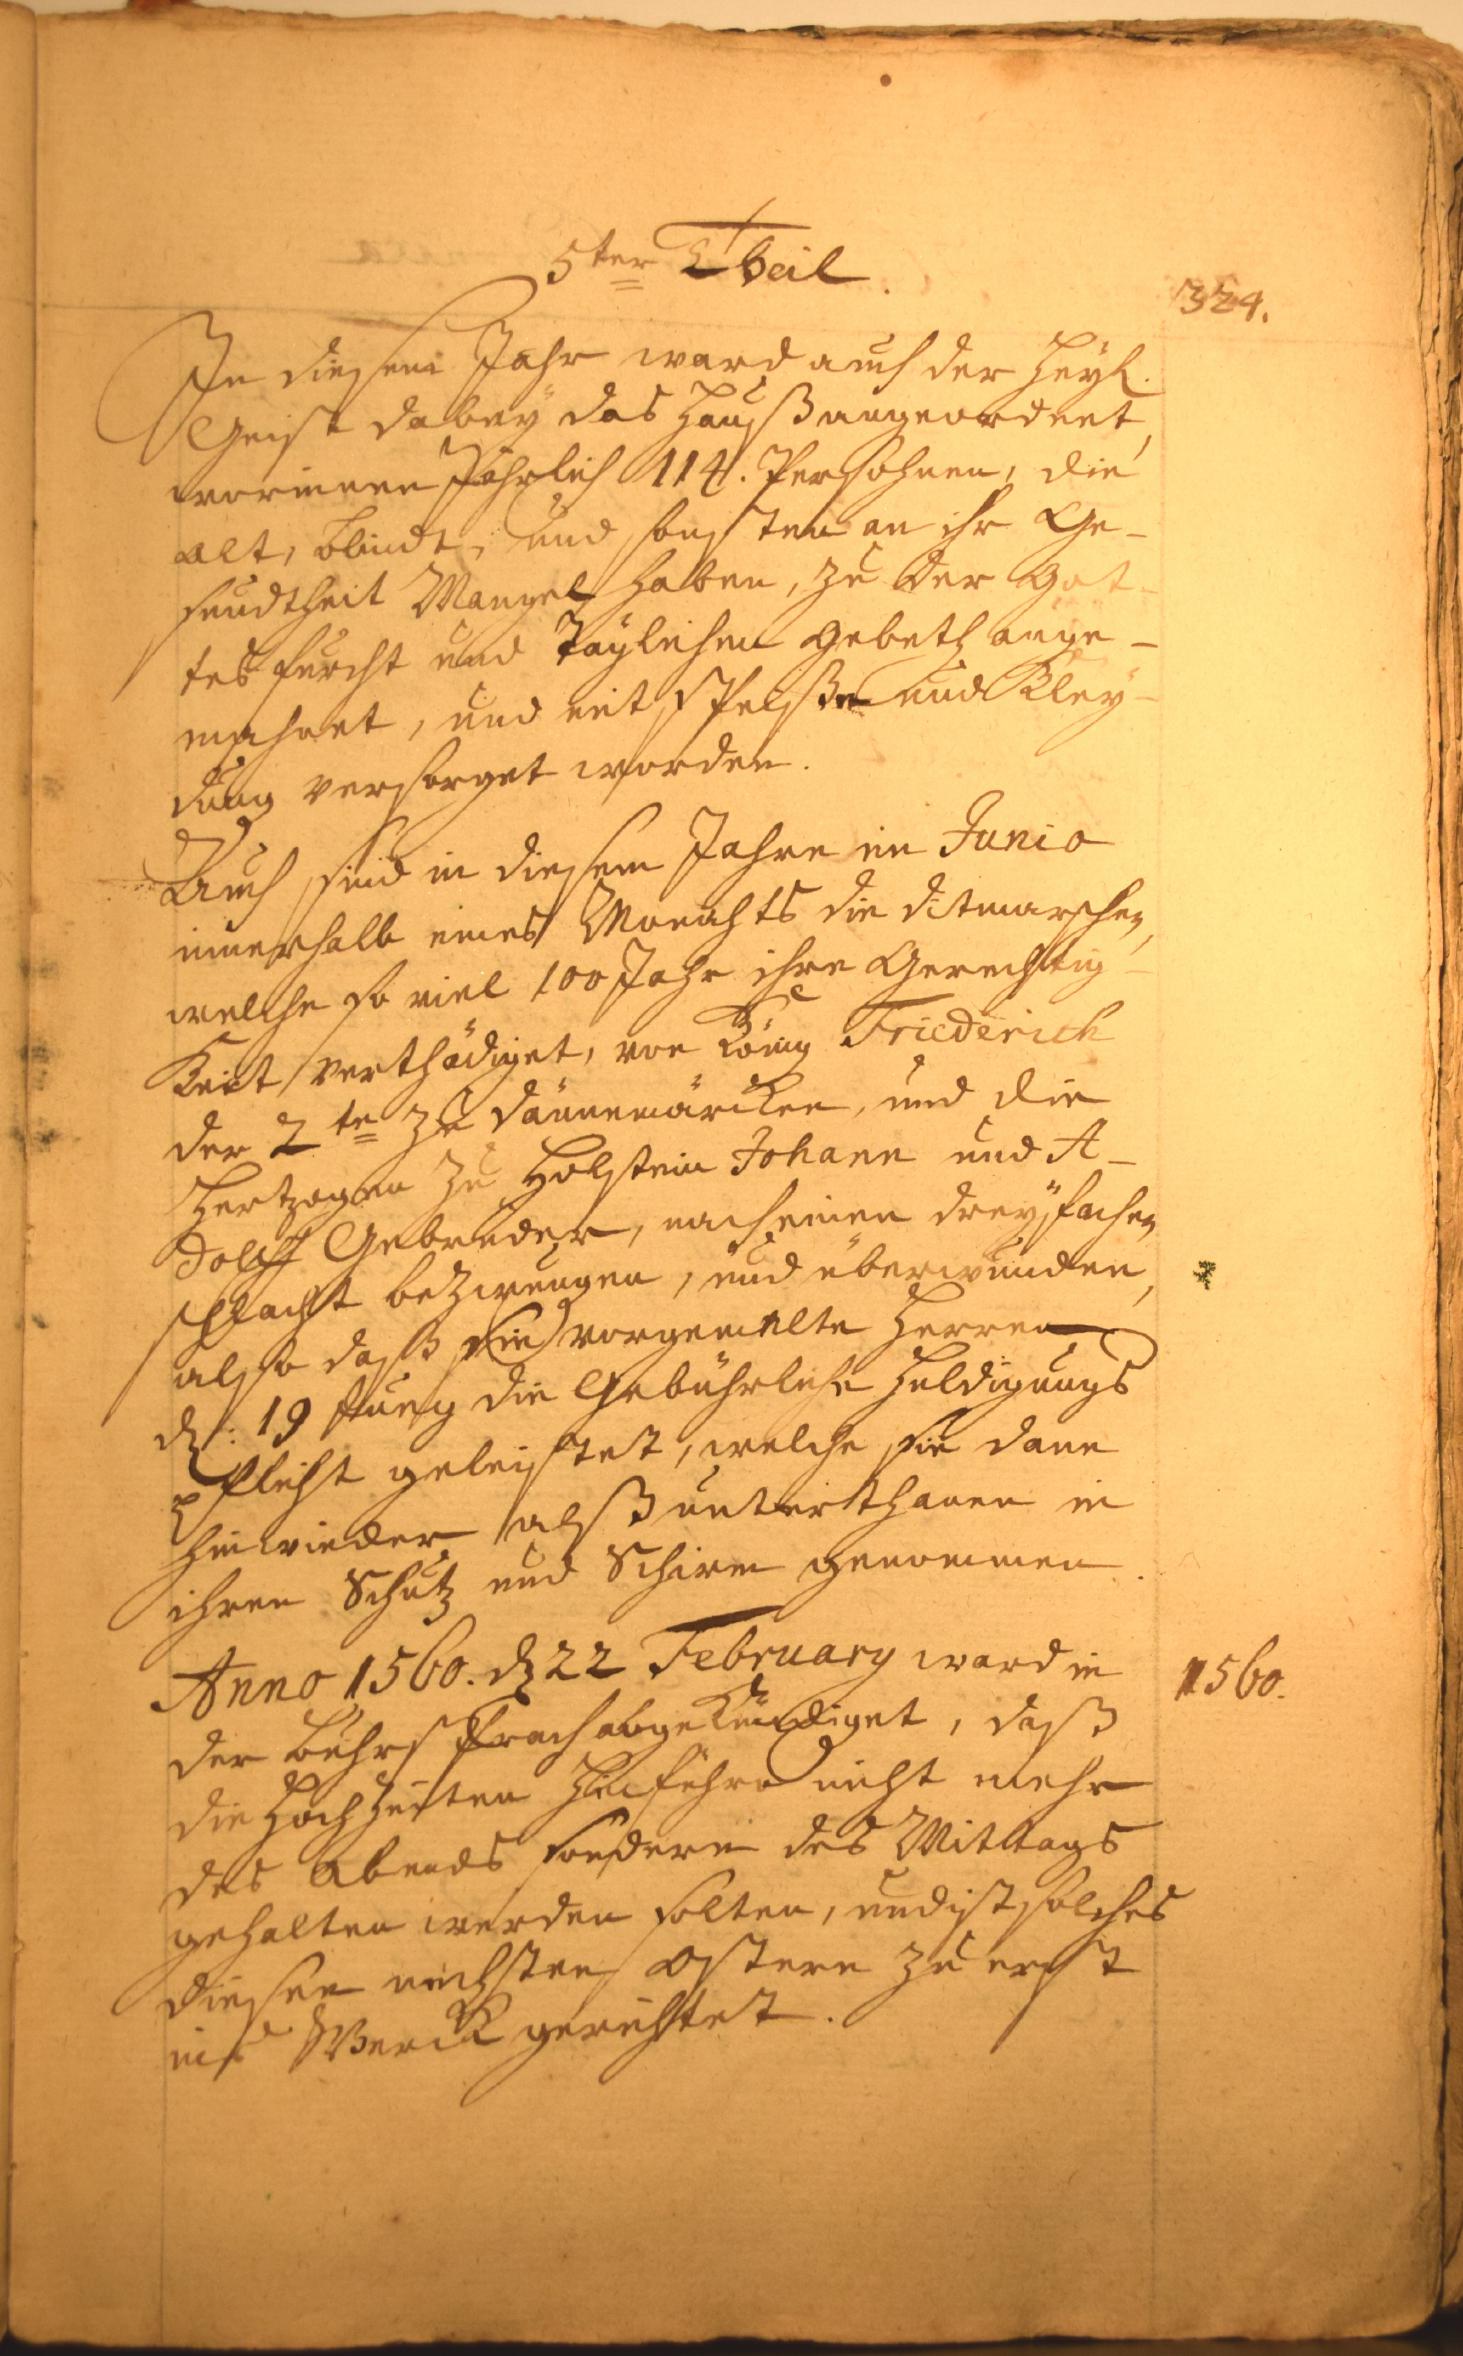 5ter Theil.
324.
In diesem Jahr ward auch der Heyl.
Geist dabey das Hauß angeordnet,
worinnen Jährlich 114. Persohnen, die
alt, blindt, und sonsten an ihr Ge-
sundtheit Mangel haben, zu der Got-
tes furcht und Täglichen Gebeth ange-
mahnet, und mit Speiße und Kley-
dung versorget worden.
Auch sind in diesem Jahre im Junio
innerhalb eines Monahts die ditmarschen,
welche so viel 100 Jahr ihre Gerechtig-
keit verthädiget, von König Friederich
der 2te zu Dännemärcken, und die
Hertzogen zu Holstein Johann und A-
dolff Gebrüder, nach einen dreyfachen
schlacht bezwungen, und überwunden,
also daß sie vorgemelte Herren
d: 19 Juny die Gebührliche Huldigungs
pflicht geleistet, welche sie dann
hinwieder alß unterthanen in
ihren Schutz und Schirm genommen.
Anno 1560. d 22 February ward in
1560.
der buhrsprach abgekündiget, daß
die Hochzeiten hinführo nicht mehr
des Abends sondern des Mittags
gehalten werden solten, und ist solches
diesen nechsten Ostern zu erst
ins Werck gerichtet.